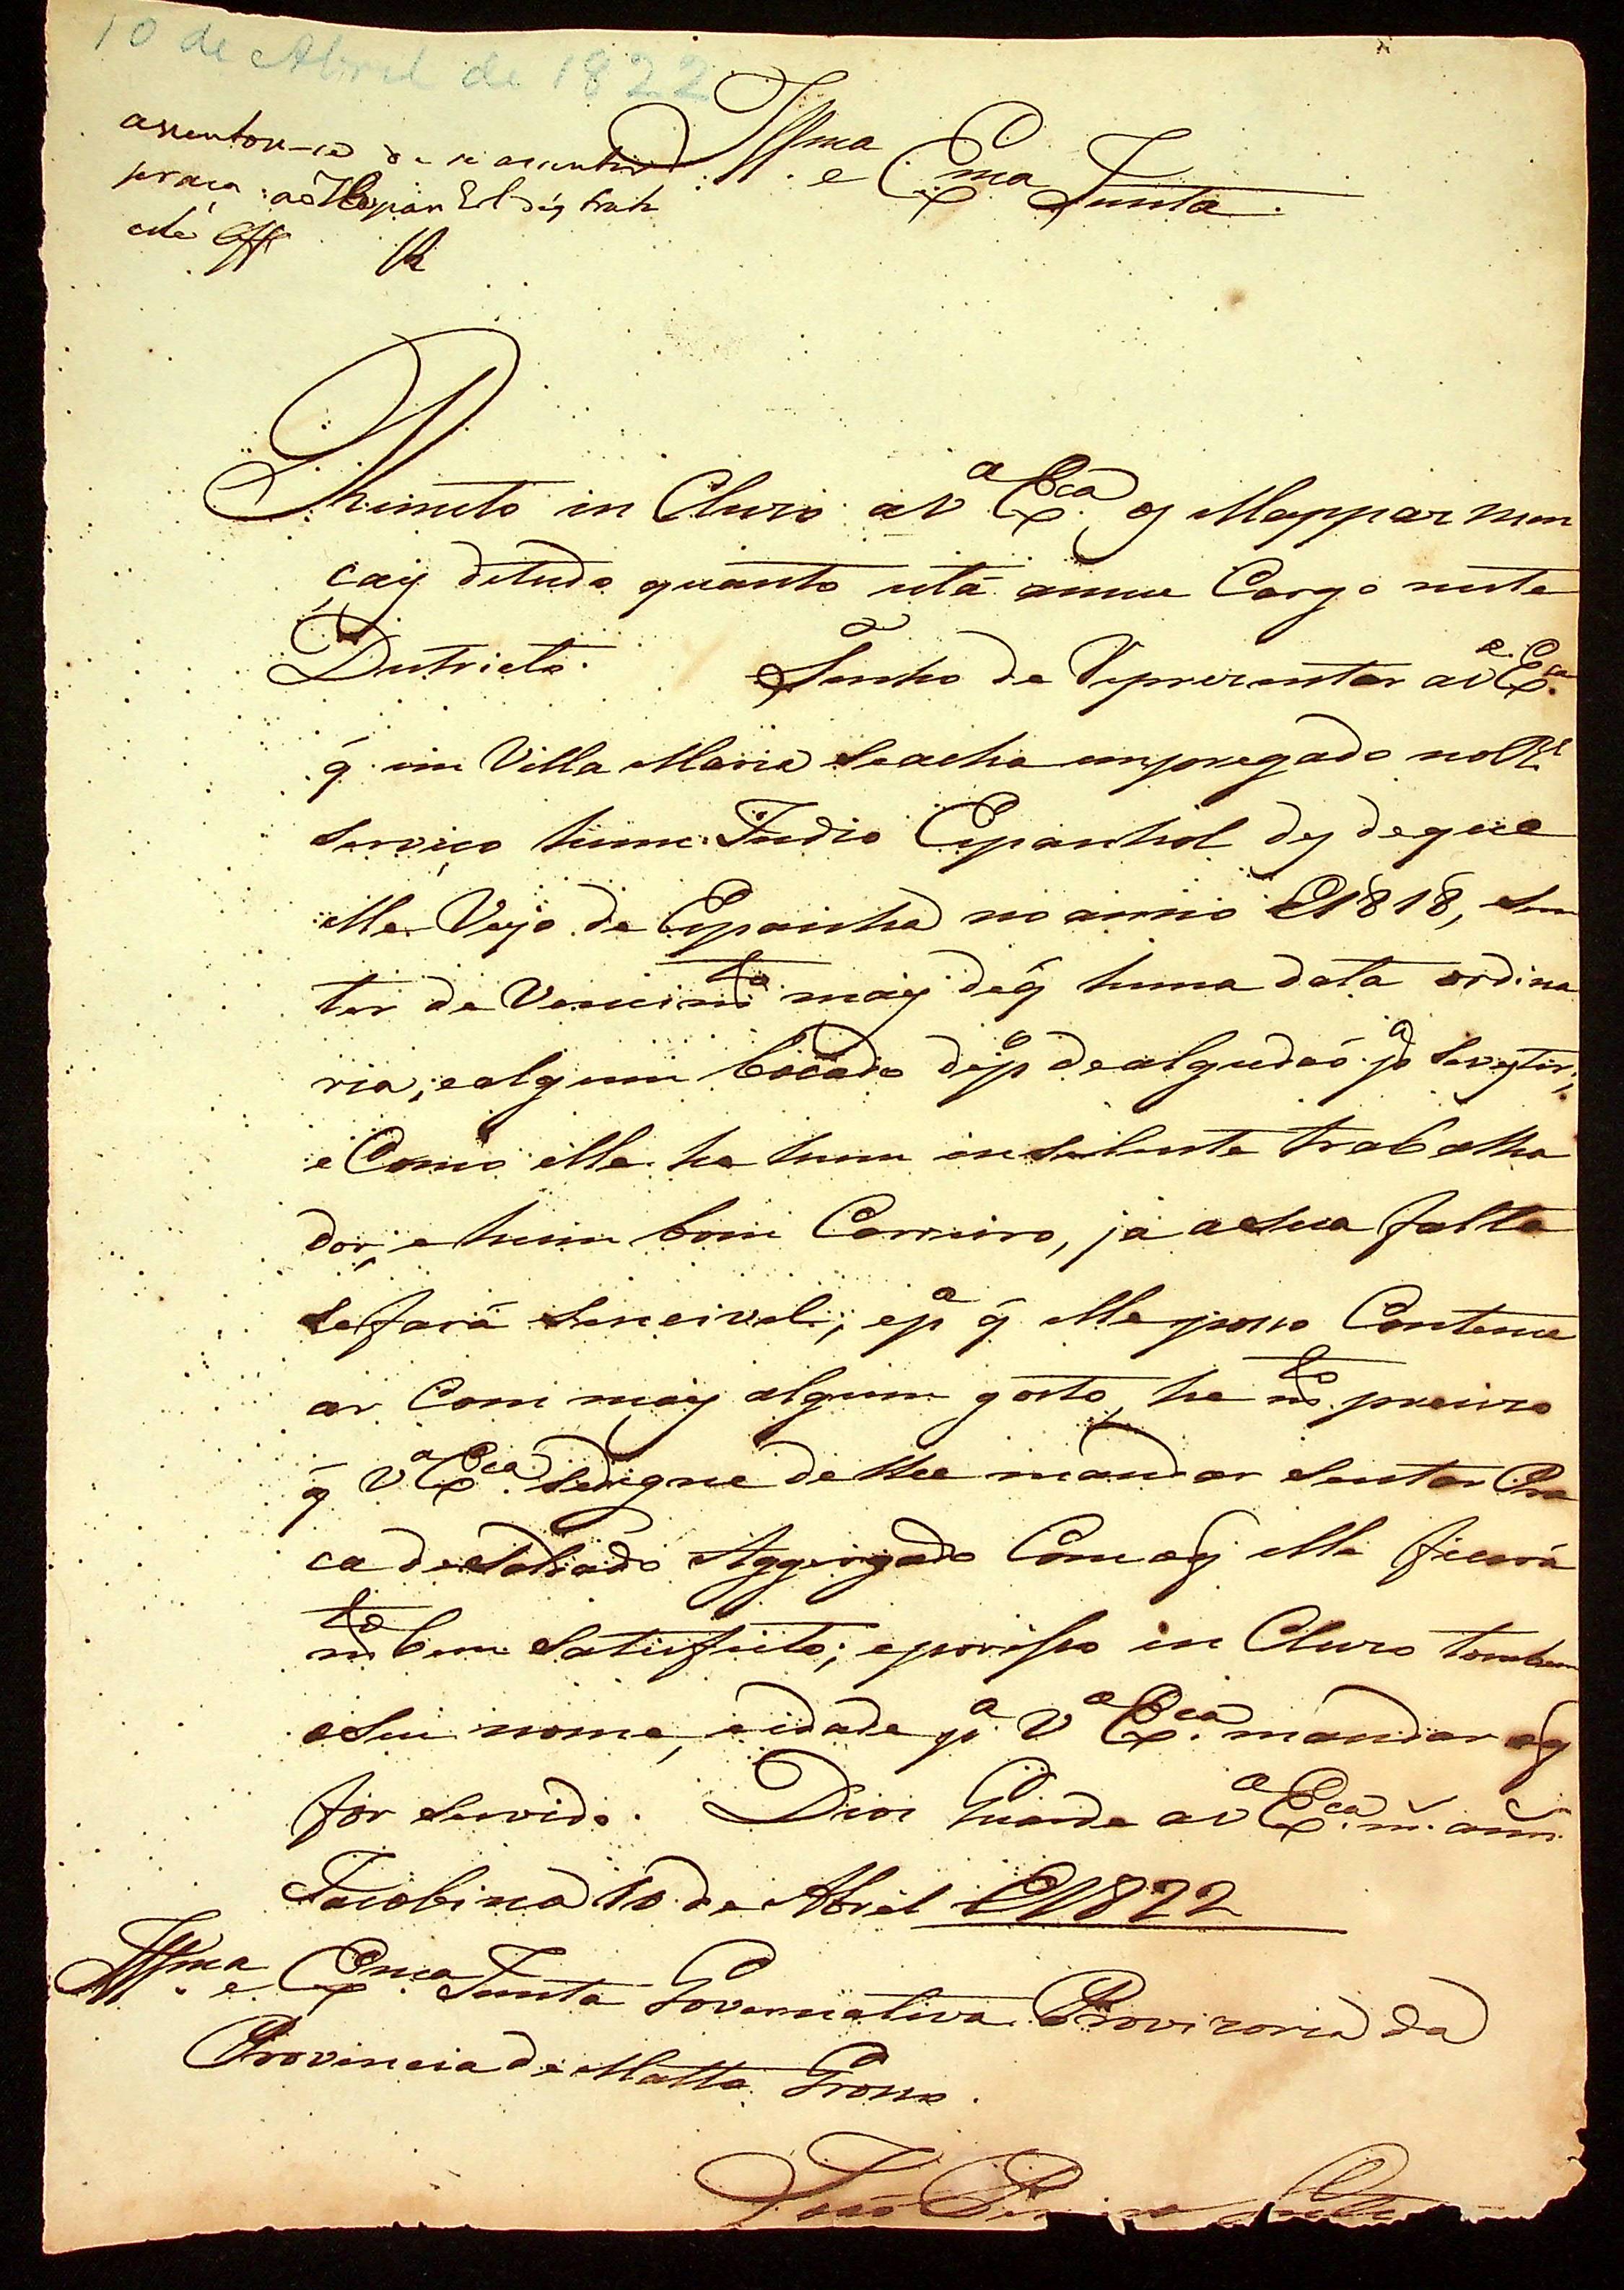 10 de Abril de 1822
Illma e Exma Junta.
assentou-se
praça
este Off
Remeto incluzo a Va Exca os Mappas men
çais detudo quanto está amue Cargo neste
Destricto. Tenho de Reprezentar a Va Exca
q̃ em Villa Maria seacha empregado no Rl
serviço hum Indio Espanhol desdeque
elle Veyo de Espanha no anno d1818, sem
ter de Vencimto mais déq̃ huma data ordina
ria, ealgum bocado de pº dealgudaõ pa sevestir;
e Como elle he hum inselente trabalha
dor, e hum bom Carreiro, já asua falta
sefará sencivel; epa q̃ elle posso Contenue
ar Com mais algum gosto, he mto precizo
q̃ Va Exca sedigne de lhe mandar sentar Pra
ca deSoldado Aggregado Com oq̃ elle ficará
mto bem satisfeito; eporisso incluzo tombem
oseu nome, eidade pa Va Exca mandar oq̃
for servido. Deos Guarde a Va Exca ms. anns.
Jacobina 10 de Abril d1822
Illma e Exma Junta Governativa Provizoria da
Provincia de Matto Grosso.
João Pereira Leite